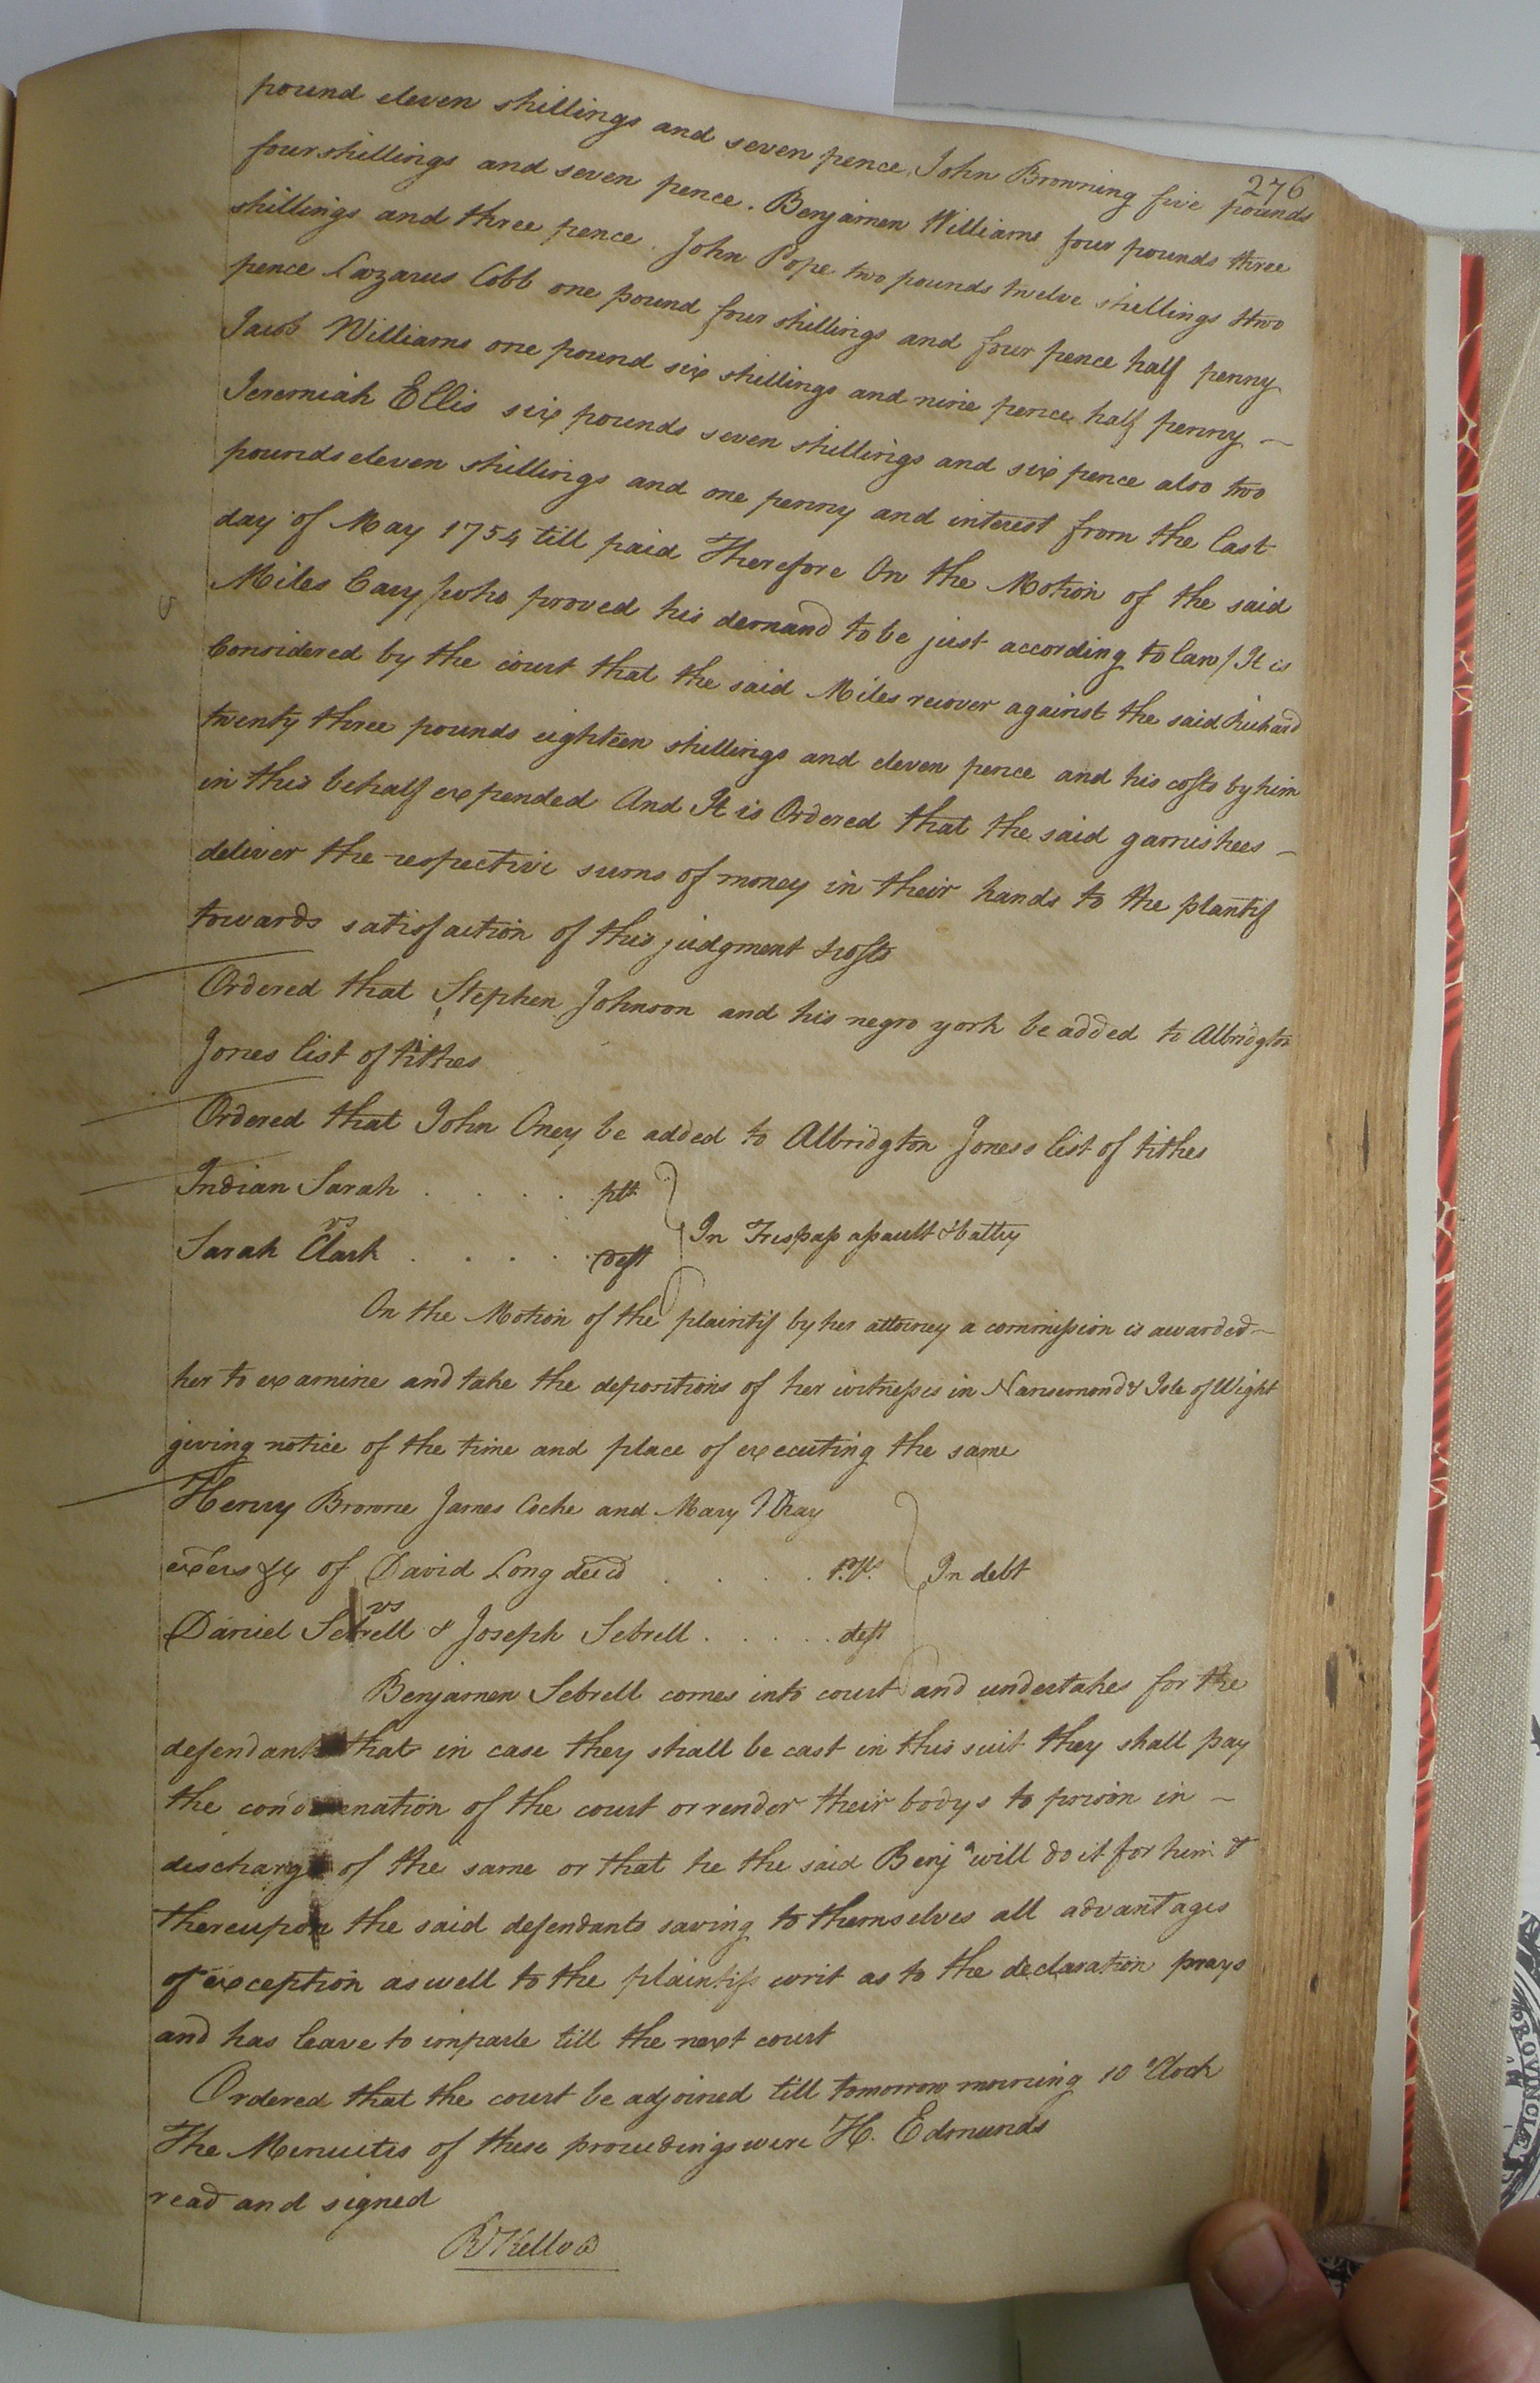 276
pound eleven shillings and seven pence, John Browning five pounds
four shillings and seven pence. Benjamen Williams four pounds three
shillings and three pence. John Pope two pounds twelve shillings two
pence Lazarus Cobb one pound four shillings and four pence half penny
Jacob Williams one pound six shillings and nine pence half penny —
Jeremiah Ellis six pounds seven shillings and six pence also two
pounds eleven shillings and one penny and interest from the last
day of May 1754 till paid Therefore On the Motion of the said
Miles Cary /who proved his demand to be just according to law/ It is
Considered by the court that the said Miles recover against the said Richard
twenty three pounds eighteen shillings and eleven pence and his costs by him
in this behalf expended And It is Ordered that the said garnishees —
deliver the respective sums of money in their hands to the plantif
towards satisfaction of this judgment & costs
Ordered that Stephen Johnson and his negro york be added to Albridgton
Jones list of tithes
Ordered that John Oney be added to Albridgton Joness list of tithes
Indian Sarah . . . . plt
vs
In Trespass assault & battry
Sarah Clark . . . . . deft
On the Motion of the plaintif by her attorney a commission is awarded —
her to examine and take the depositions of her witnesses in Nansemond & Isle of Wight
giving notice of the time and place of executing the same
Henry Browne James Cocke and Mary
exers &c of David Long decd . . . . plts. In debt
vs
Daniel Sebrell & Joseph Sebrell . . . . . deft
Benjamen Sebrell comes into court and undertakes for the
defendants that in case they shall be cast in this suit they shall pay
the condemnation of the court or render their bodys to prison in —
discharge of the same or that he the said Benja will do it for him &
thereupon the said defendants saving to themselves all advantages
of exception as well to the plaintifs writ as to the declaration prays
and has leave to imparle till the next court
Ordered that the court be adjoined till tomorrow morning 10 'Clock
The Minuites of these proceedings were H. Edmunds
read and signed
R Kello